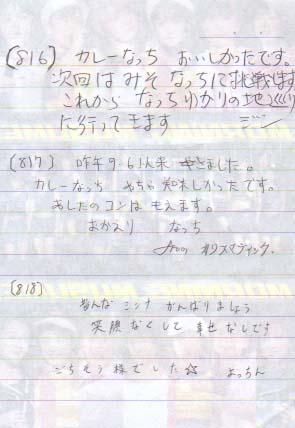 (816) カレーなっち おいしかったです。
次回はみそなっちに挑戦します
これから なっちゆかりの地巡り
に行ってきます ジン
(817) 昨年9.6以来 きました。
カレーなっち めちゃ美味しかったです。
あしたのコンはもえます。
おかえり なっち
(818)
皆んな ミンナ がんばりましょう
笑顔なくして 幸せなしです
ごちそう様でした☆ よっちん